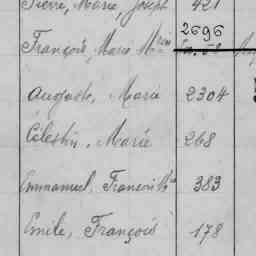 Pierre, Marie Joseph 421
2696
François, Marie
Auguste, Marie 2304
Célestin, Marie 268
Emmanuel, François 383
Emile, François 178